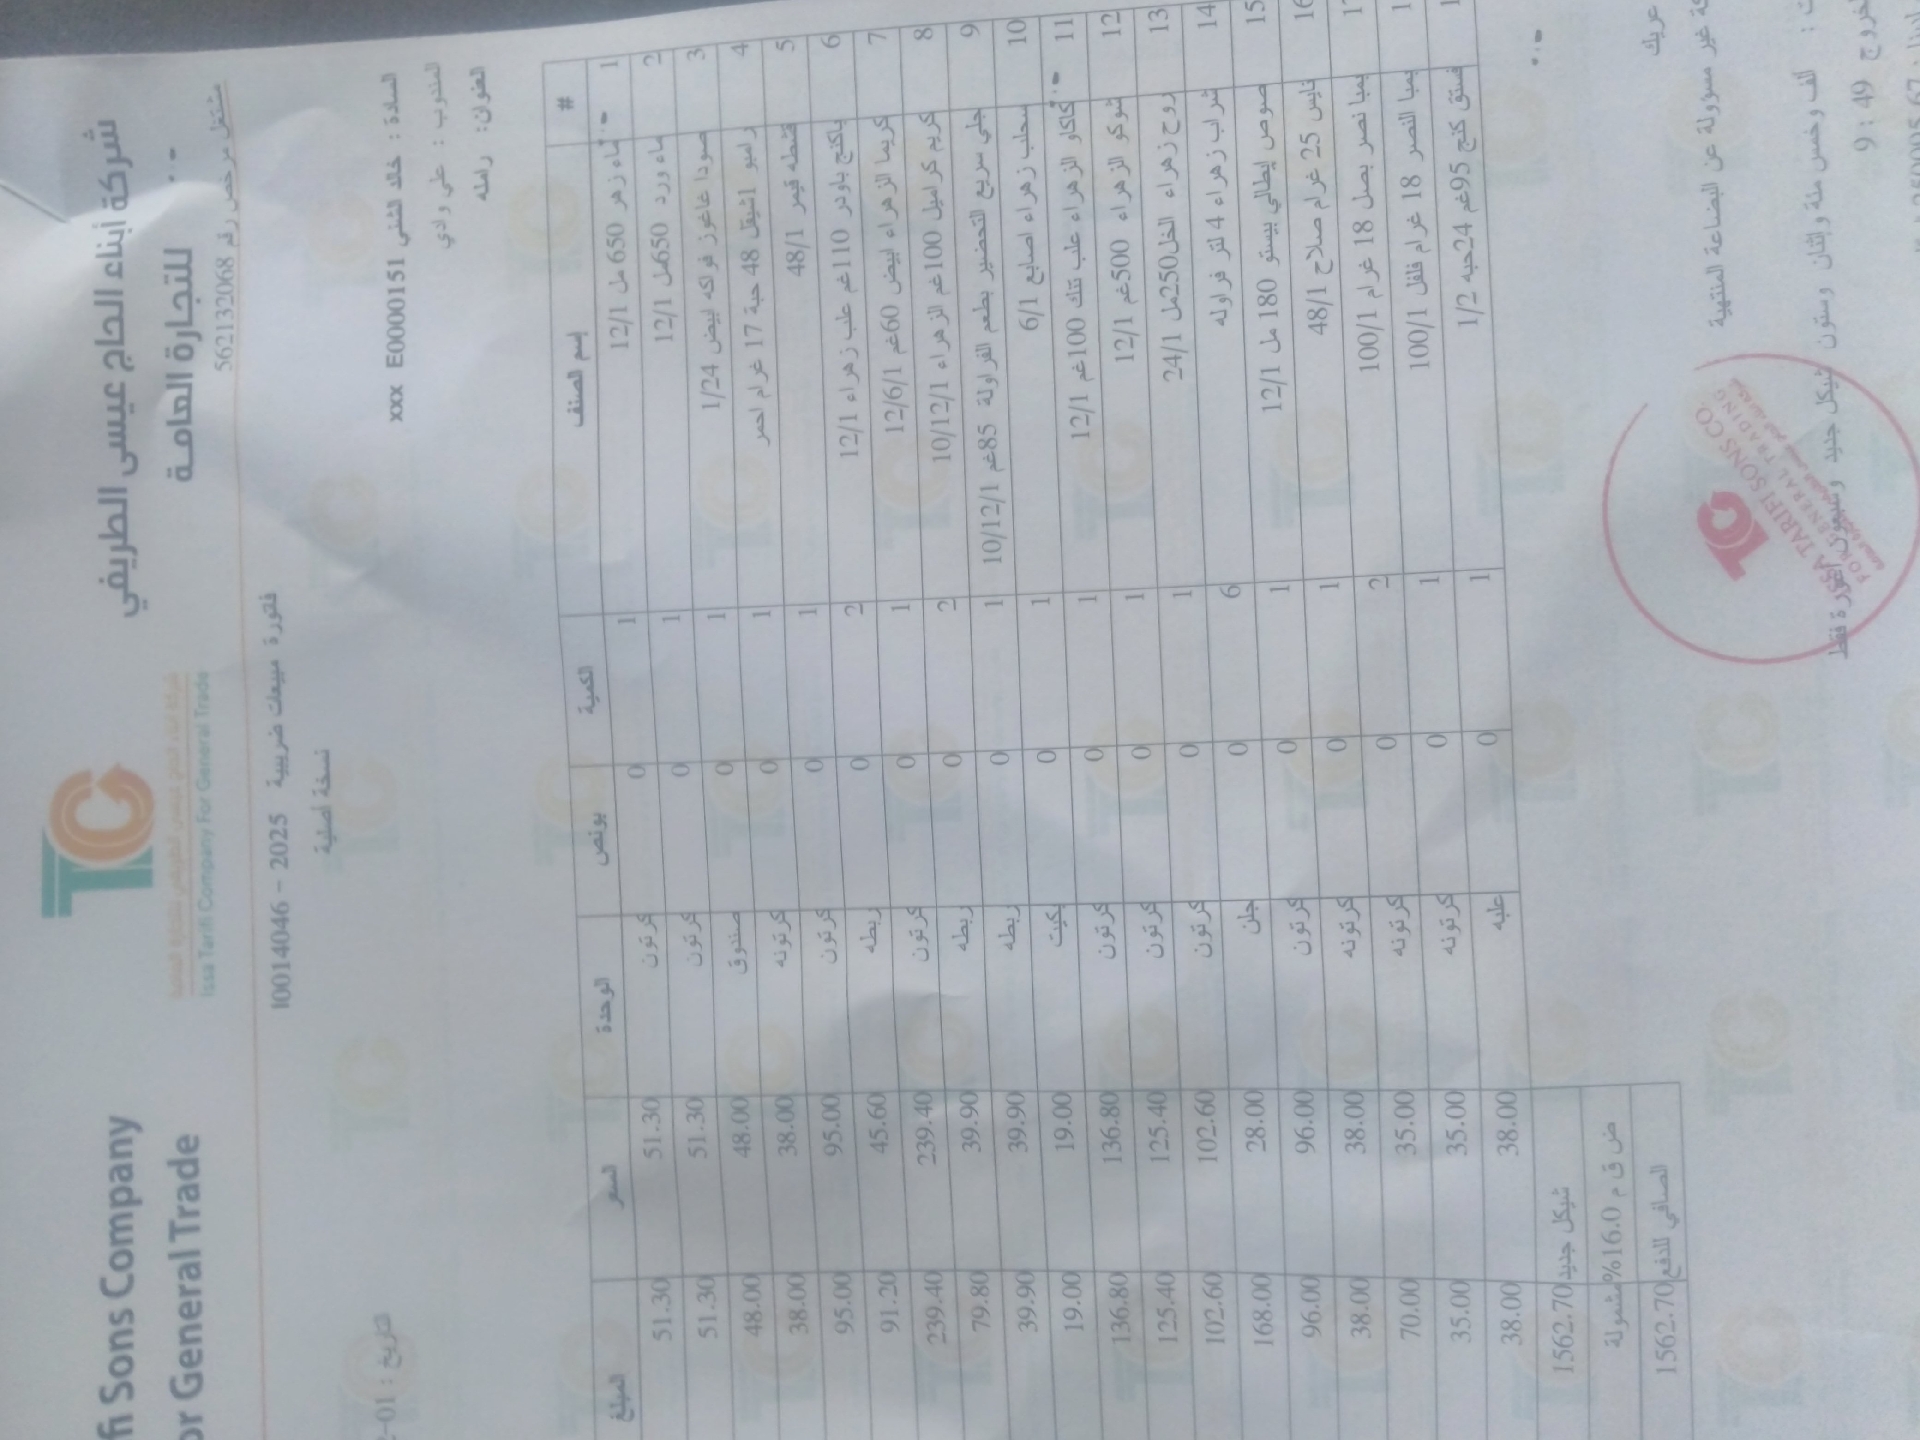 شركة أبناء الحاج عيسى الطريفي
للتجارة العامة
fi Sons Company
or General Trade
TC
Issa Tarifi Company For General Trade
مشتغل مرخص رقم 562132068
فتورة مبيعات ضريبية 2025 - I00014046
نسخة اصلية
السادة : خالد الشني E0000151 xxx
تاريخ : 01-
المندوب : علي وادي
العنوان: رمله
# إسم الصنف الكمية بونص الوحدة السعر المبلغ
1 ماء زهر 650 مل 12/1 1 0 كرتون 51.30 51.30
2 ماء ورد 650مل 12/1 1 0 كرتون 51.30 51.30
3 صودا عاغوز فواكه ابيض 1/24 1 0 صندوق 48.00 48.00
4 رامبو اشيقل 48 حبة 17 غرام احمر 1 0 كرتونه 38.00 38.00
5 قشطه قيمر 48/1 1 0 كرتون 95.00 95.00
6 باكنج باودر 110غم علب زهراء 12/1 2 0 ربطه 45.60 91.20
7 كريما الزهراء ابيض 60غم 12/6/1 1 0 كرتون 239.40 239.40
8 كريم كراميل 100غم الزهراء 10/12/1 2 0 ربطه 39.90 79.80
9 جلي سريع التحضير بطعم الفراولة 85غم 10/12/1 1 0 ربطه 39.90 39.90
10 سحلب زهراء اصابع 6/1 1 0 بكيت 19.00 19.00
11 كاكاو الزهراء علب تنك 100غم 12/1 1 0 كرتون 136.80 136.80
12 شوكو الزهراء 500غم 12/1 1 0 كرتون 125.40 125.40
13 روح زهراء الخل250مل 24/1 1 0 كرتون 102.60 102.60
14 شراب زهراء 4 لتر فراوله 6 0 جلن 28.00 168.00
15 صوص ايطالي بيستو 180 مل 12/1 1 0 كرتون 96.00 96.00
16 نايس 25 غرام صلاح 48/1 1 0 كرتونه 38.00 38.00
1 بمبا نصر بصل 18 غرام 100/1 2 0 كرتونه 35.00 70.00
1 بمبا النصر 18 غرام فلفل 100/1 1 0 كرتونه 35.00 35.00
1 فستق كنج 95غم 24حبه 1/2 1 0 علبه 38.00 38.00
شيكل جديد 1562.70
ض ق م 16.0% مشمولة
الصافي للدفع 1562.70
غير مسؤولة عن البضاعة المنتهية
الف وخمس مئة وإثنان وستون شيكل جديد وسبعون اغورة فقط
9 : 49
TC
ISSA TARIFI SONS CO.
FOR GENERAL TRADING